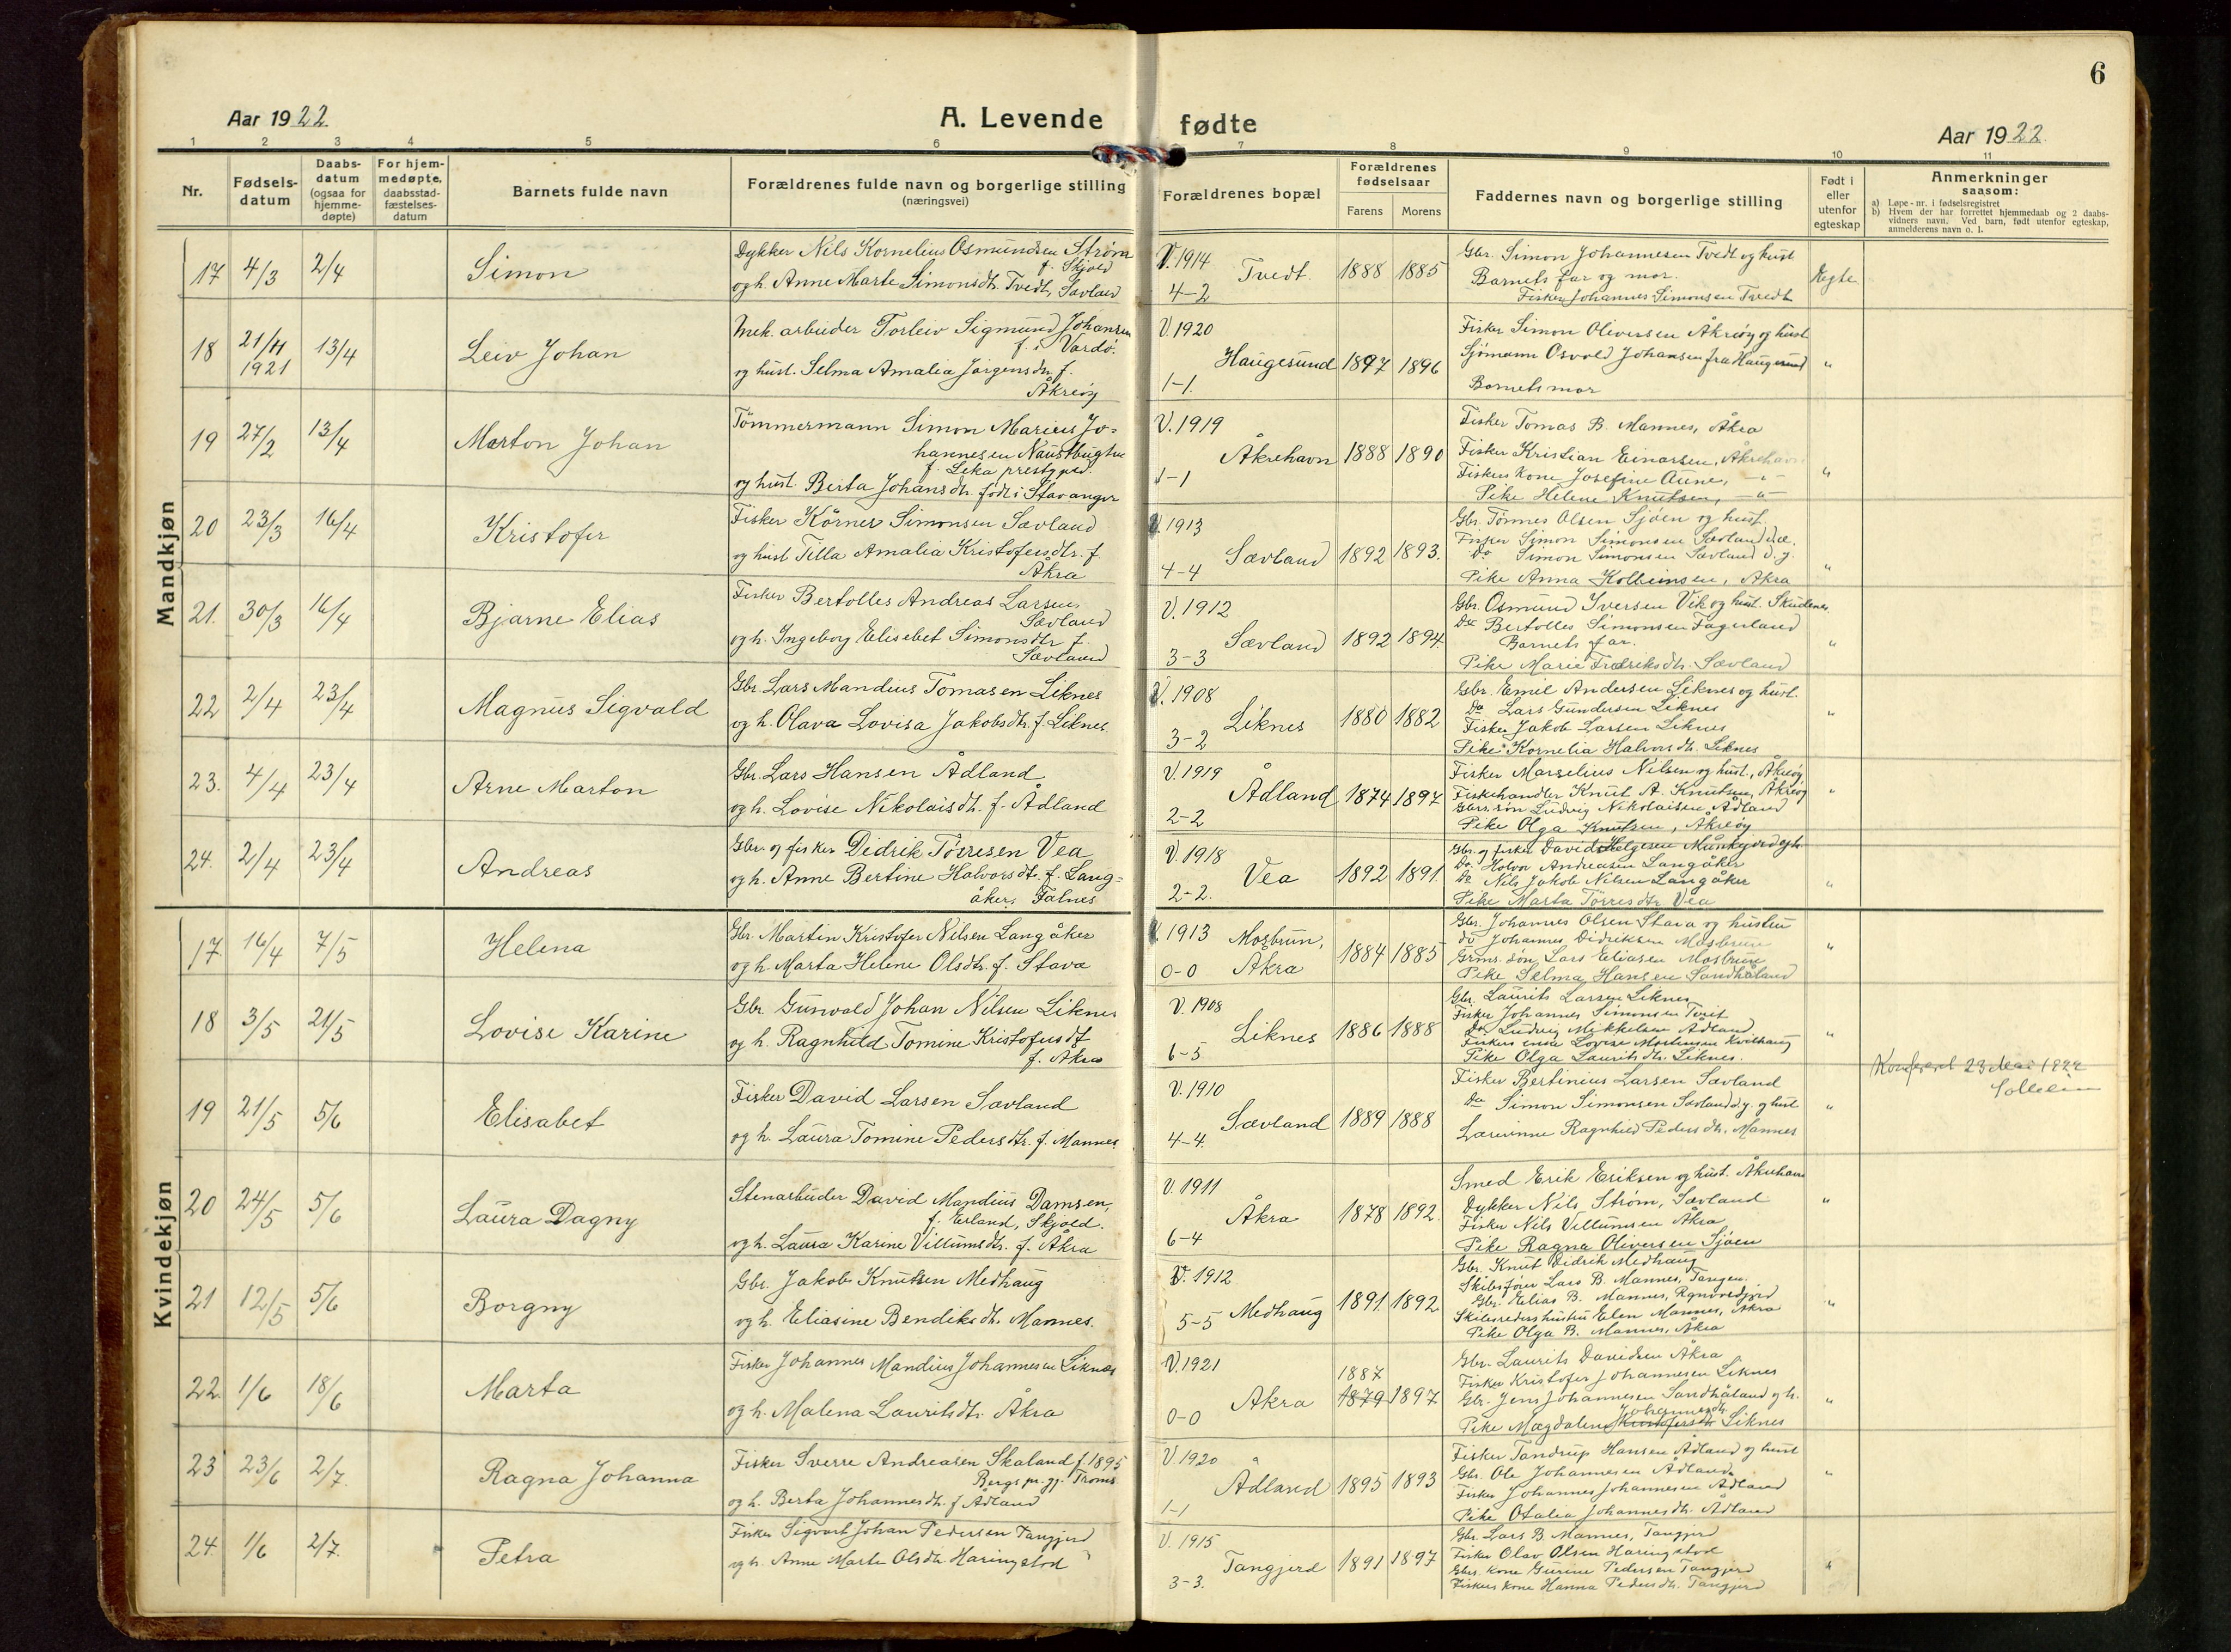 6
Aar 1922.
A. Levende fødte
Aar 1922.
1 2 3 4 5 6 7 8 9 10 11
Nr.
Fødsels-
datum
Daabs-
datum
(ogsaa for
hjemme-
døpte)
For hjem-
medøpte,
daabsstad-
fæstelses-
datum
Barnets fulde navn
Forældrenes fulde navn og borgerlige stilling
(næringsvei)
Forældrenes bopæl
Forældrenes
fødselsaar
Farens Morens
Faddernes navn og borgerlige stilling
Født i
eller
utenfor
egteskap
Anmerkninger
saasom:
a) Løpe-nr. i fødselsregistret
b) Hvem der har forrettet hjemmedaab og 2 daabs-
vidners navn. Ved barn, født utenfor egteskap,
anmelderens navn o. l.
Mandkjøn
17 4/3 2/4 Simon
Dykker Nils Kornelius Osmundsen Strøm
f. Skjold
og h. Anne Marte Simonsdtr. Tvedt, Sævland
V. 1914
4-2 Tvedt. 1888 1885
Gbr. Simon Johannesen Tvedt og hust
Barnets far og mor.
Fisker Johannes Simonsen Tvedt
Ægte
18 21/11 1921 13/4 Leiv Johan
Mek. arbeider Torleiv Sigmund Johansen
f. i Vardø.
og hust. Selma Amalia Jørgensdtr. f.
Åkreøy
V. 1920
Haugesund 1897 1896
1-1.
Fisker Simon Oliversen Åkreøy og hust
Sjømann Osvald Johansen fra Haugesund
Barnets mor
"
19 27/2 13/4 Marton Johan
Tømmermann Simon Marius Jo=
hannesen Naustbugten
f. Leka prestgjeld.
og hust. Berta Johansdtr. født i Stavanger
V. 1919
Åkrehavn 1888 1890
1-1
Fisker Tomas B. Mannes, Åkra
Fisker Kristian Einarsen, Åkrehavn
Fiskers kone Josefine Aune, -"-
Pike Helene Knutsen, -"-
"
20 23/3 16/4 Kristofer
Fisker Kørner Simonsen Sævland
og hust Tilla Amalia Kristofersdtr. f.
Åkra
V. 1913
4-4 Sævland 1892 1893.
Gbr. Tønnes Olsen Sjøen og hust.
Fisker Simon Simonsen Sævland d.æ.
Do Simon Simonsen Sævland d.y.
Pike Anna Kolbeinsen, Åkra
"
21. 30/3 16/4 Bjarne Elias
Fisker Bertolles Andreas Larsen
Sævland
og h. Ingeborg Elisebet Simonsdtr f.
Sævland
V. 1912
3-3 Sævland 1892 1894.
Gbr. Osmund Iversen Vik og hust. Skudenes
Do Bertolles Simonsen Fagerland
Barnets far.
Pike Marie Fredriksdtr. Sævland
"
22 2/4 23/4 Magnus Sigvald
Gbr Lars Mandius Tomasen Liknes
og h. Olava Lovisa Jakobsdtr. f. Liknes.
V. 1908
3-2 Liknes 1880 1882
Gbr. Emil Andersen Liknes og hust.
Do Lars Gundersen Liknes
Fisker Jakob Larsen Liknes
Pike Kornelia Halvorsdtr. Liknes
"
23. 4/4 23/4 Arne Marton
Gbr. Lars Hansen Ådland
og h. Lovise Nikolaisdtr. f. Ådland
V. 1919
2-2 Ådland 1874 1897
Fisker Marselius Nilsen og hust., Åkreøy
Fiskehandler Knut A. Knutsen, Åkreøy
Gbrs. søn Ludvig Nikolaisen Ådland
Pike Olga Knutsen, Åkreøy
"
24. 2/4 23/4 Andreas
Gbr. og fisker Didrik Tørresen Vea
og h. Anne Bertine Halvorsdtr. f. Lang=
åker, Falnes
V. 1918
2-2. Vea 1892 1891.
Gbr. og fisker David Helgesen
Do. Halvor Andreasen Langåker
Do Nils Jakob Nilsen Langåker
Pike Marta Tørresdtr Vea
"
Kvindekjøn
17. 16/4 7/5 Helena
Gbr. Martin Kristofer Nilsen Langåker
og h. Marta Helene Olsdtr. f. Stava
V. 1913 Mosbrun,
0-0 Åkra 1884 1885
Gbr. Johannes Olsen Stava og hustru
do Johannes Didriksen Mosbrun
Grms. søn Lars Eliasen Mosbrun
Pike Selma Hansen Sandhåland
"
18 3/5 21/5 Lovise Karine
Gbr. Gunvald Johan Nilsen Liknes
og h. Ragnhild Tomine Kristofersdt
f. Åkra
V. 1908
6-5 Liknes 1886 1888
Gbr. Laurits Larsen Liknes
Fisker Johannes Simonsen Tveit
Do Ludvig Mikkelsen Ådland
Fiskers enke Lovise Mortensen Kvilhaug
Pike Olga Lauritsdtr. Liknes.
"
Konferert 23 Mai 1922
19 21/5 5/6 Elisabet
Fisker David Larsen Sævland
og h. Laura Tomine Pedersdtr. f. Mannes
V. 1910
4-4. Sævland 1889 1888
Fisker Bertinius Larsen Sævland
Do Simon Simonsen Sævland d.y. og hust
Lærerinne Ragnhild Pedersdtr. Mannes
"
20 24/5 5/6 Laura Dagny
Stenarbeider David Mandius Damsen,
f. Erland, Skjold.
og h. Laura Karine Villumsdtr. f. Åkra
V. 1911
6-4 Åkra 1878 1892.
Smed Erik Eriksen og hust. Åkrehavn
Dykker Nils Strøm, Sævland
Fisker Nils Villumsen Åkra
Pike Ragna Oliversen Sjøen
"
21 12/5 5/6 Borgny
Gbr. Jakob Knutsen Medhaug
og h. Eliasine Bendiksdtr. Mannes.
V. 1912
5-5 Medhaug 1891. 1892
Gbr. Knut Didrik Medhaug
Skibsfører Lars B. Mannes, Tangen.
Gbr. Elias B. Mannes,
Skibsreders hustru Elen Mannes, Åkra
Pike Olga B. Mannes, Åkra
"
22. 1/6 18/6 Marta
Fisker Johannes Mandius Johannesen Liknes
og h. Malena Lauritsdtr. Åkra
V. 1921
1887
0-0 Åkra 1879 1897
Gbr. Laurits Davidsen Åkra
Fisker Kristofer Johannesen Liknes
Gbr. Jens Johannesen Sandhåland og h.
Johannesdtr.
Pike Magdalena Kristofersdtr Liknes
"
23 23/6 2/7. Ragna Johanna
Fisker Sverre Andreasen Skaland f. 1895
Bergs pr. gj. Troms
og h. Berta Johannesdtr. f Ådland
V 1920
1-1 Ådland 1895 1893
Fisker Tandrup Hansen Ådland og hust
Gbr. Ole Johannesen Ådland.
Fisker Johannes Johannesen Ådland
Pike Otalia Johannesdtr. Ådland
"
24. 1/6 2/7. Petra
Fisker Sigvart Johan Pedersen Tangjerd
og h. Anne Marte Olsdtr. Haringstad
V. 1915
3-3. Tangjerd 1891 1897
Gbr. Lars B. Mannes, Tangjerd
Fisker Olav Olsen Haringstad
Gbrs. kone Gurine Pedersen Tangjerd
Fiskers kone Hanna Pedersdtr. Tangjerd
"